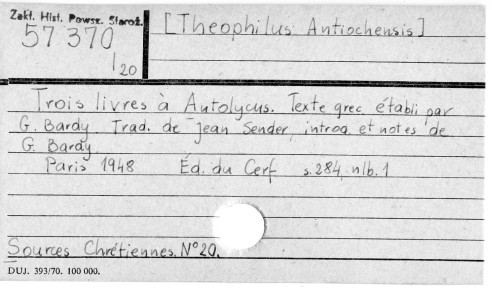 Zakł. Hist. Powsz. Staroż.
57 370
/20
[Theophilus Antiochensis]
Trois livres à Autolycus. Texte grec établi par
G. Bardy. Trad. de Jean Sender, introd. et notes de
G. Bardy.
Paris 1948 Éd. du Cerf s. 284, nlb. 1
Sources Chrétiennes. N°20.
DUJ. 393/70. 100 000.